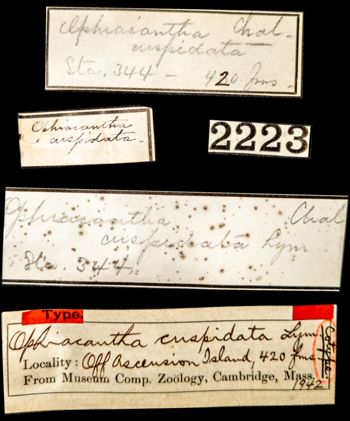 Ophiacantha Chal.
cuspidata
Sta. 344 — 420 fms.
Ophiacantha
cuspidata.
2223
Ophiacantha Chal
cuspidata Lym
Sta. 344.
Type.
Ophiacantha cuspidata Lym
Cotype
Locality: Off Ascension Island 420 fms.
From Museum Comp. Zoölogy, Cambridge, Mass.
1942